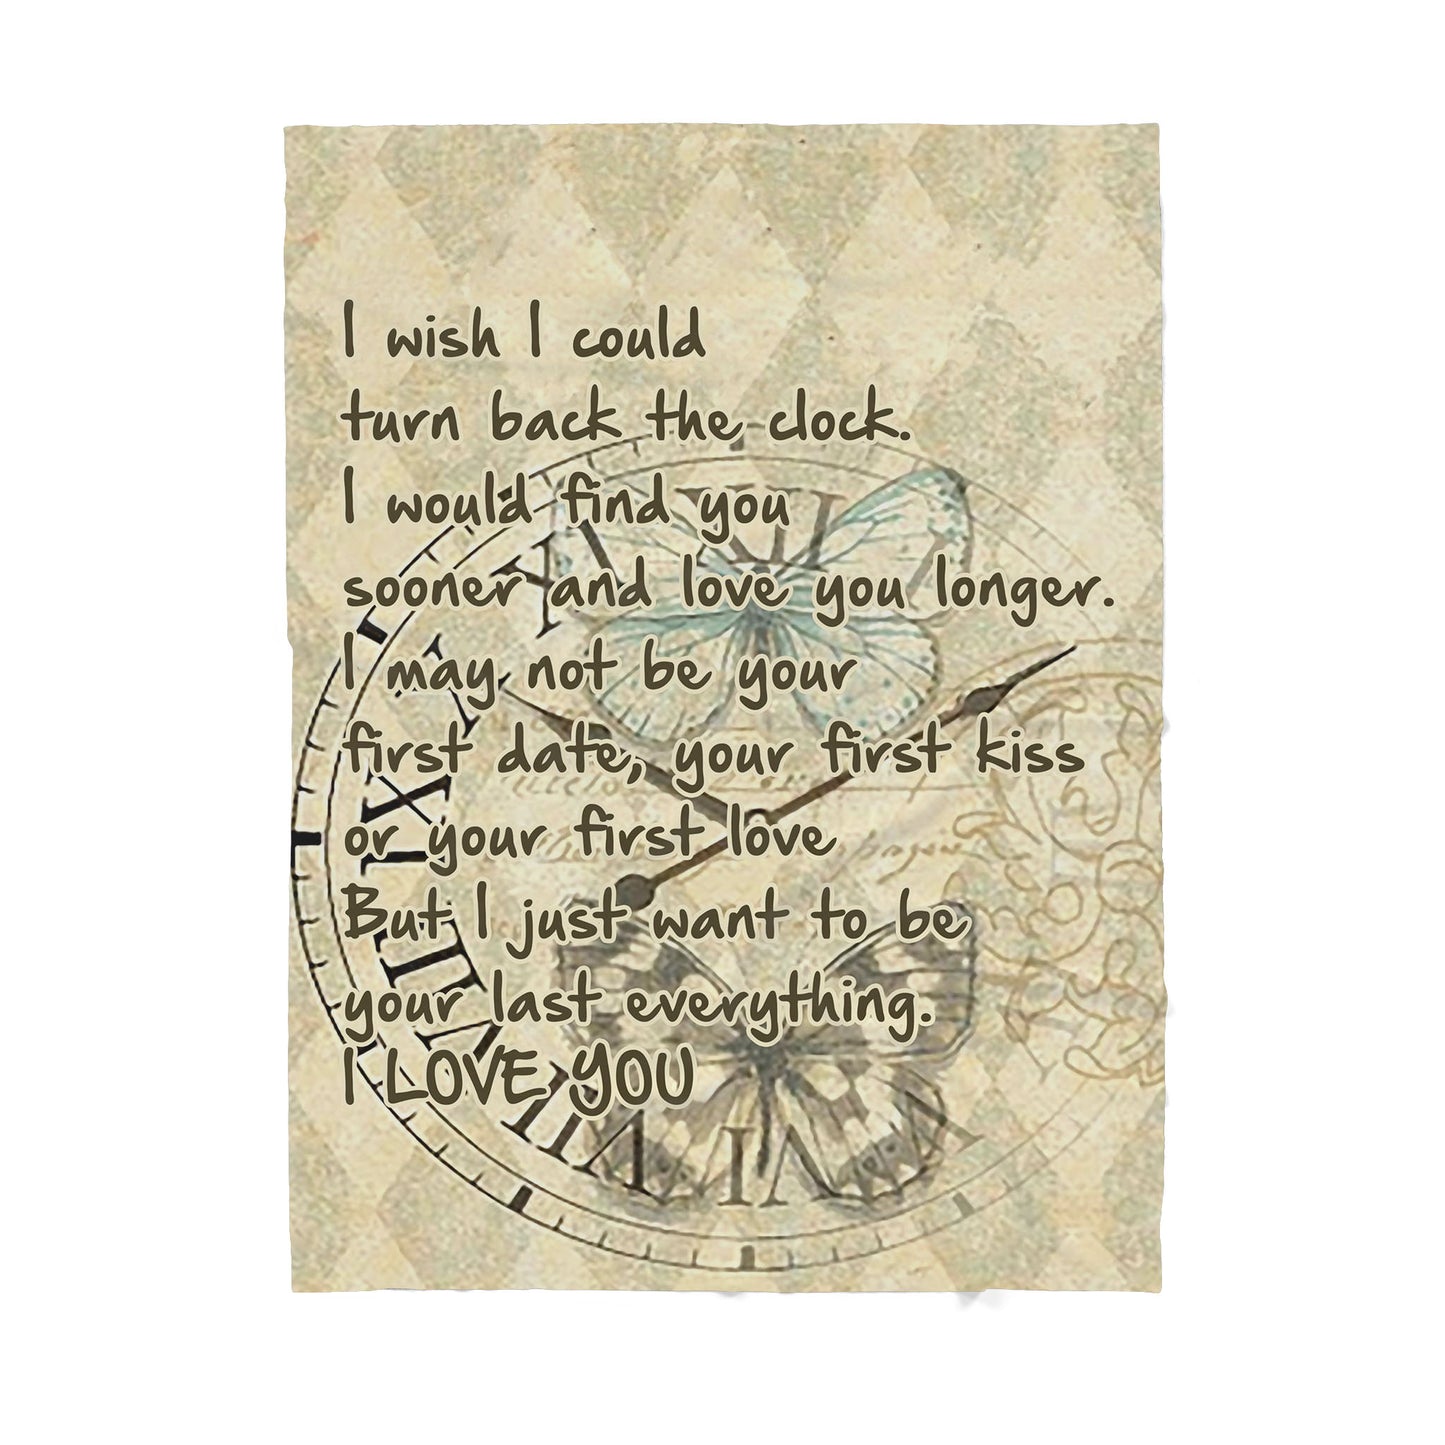 I wish I could
turn back the clock.
I would find you
sooner and love you longer.
I may not be your
first date, your first kiss
or your first love
But I just want to be
your last everything.
I LOVE YOU
XI
XII
X
IX
VIII
VII
VI
V